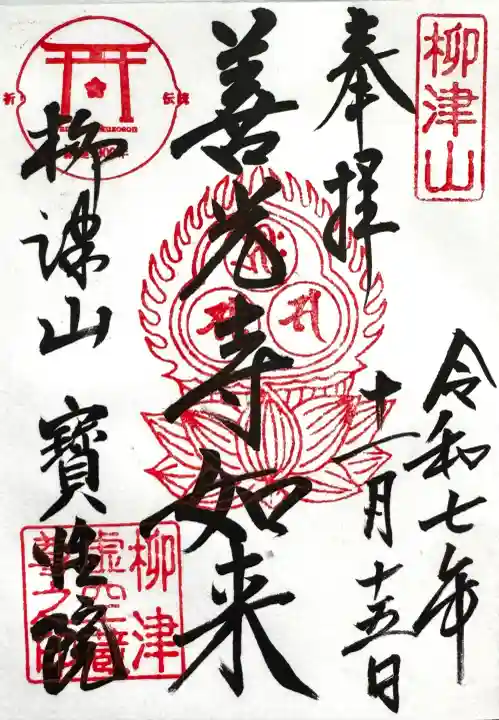 柳津山
奉拝
令和七年
十一月十五日
善光寺如来
柳津山 寶性院
柳津
虚空蔵
尊之印